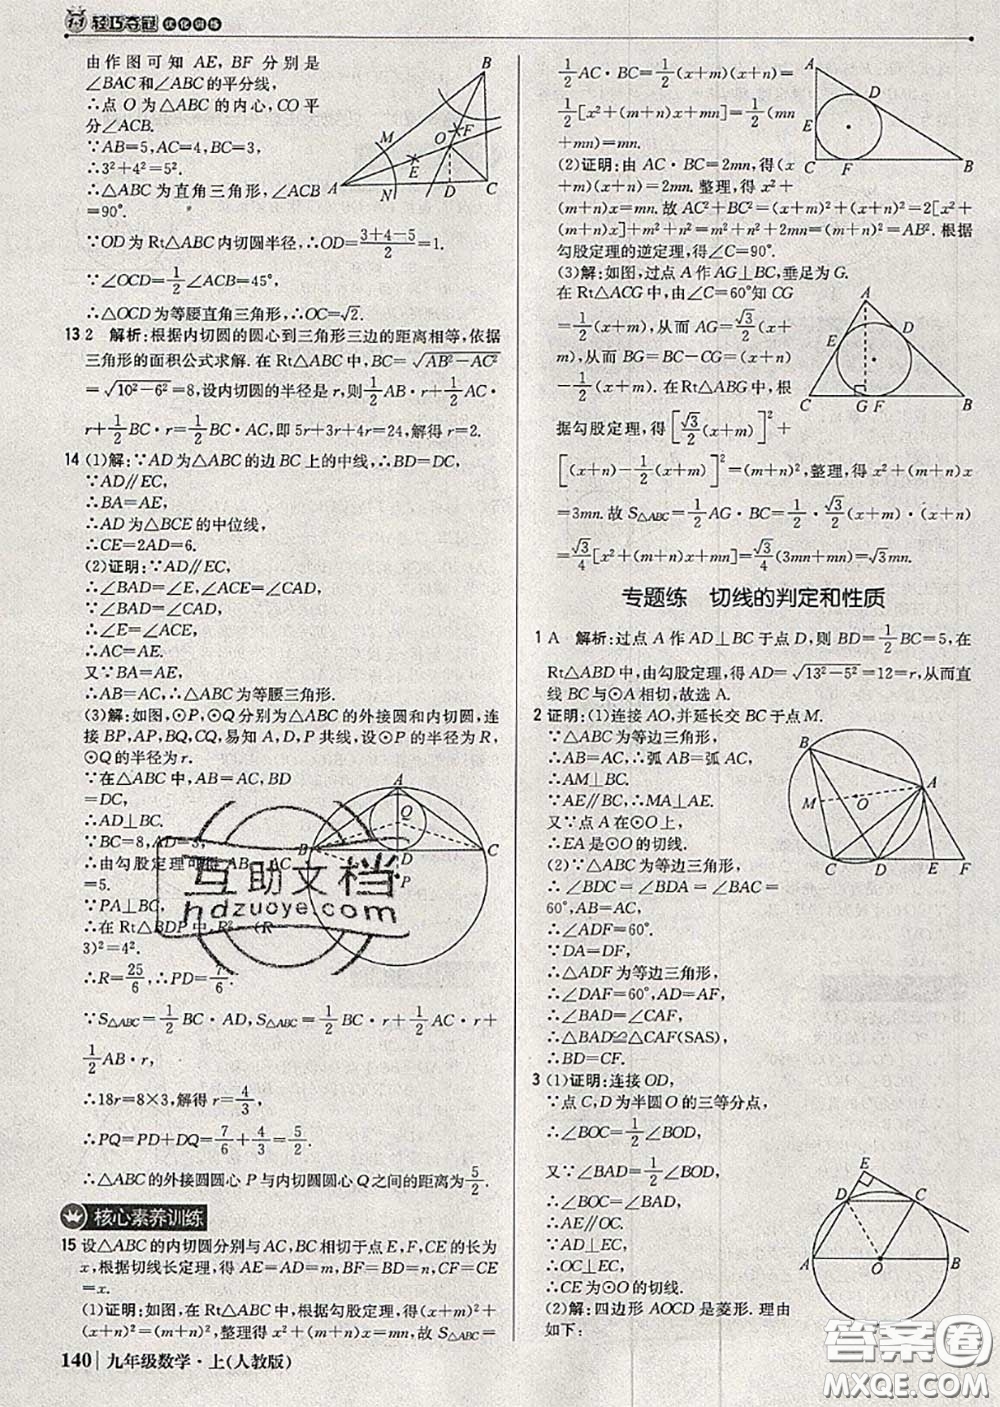 1+1 轻巧夺冠 优化训练
由作图可知 AE, BF 分别是
∠BAC和∠ABC的平分线,
∴点 O 为△ABC 的内心,CO平
分∠ACB.
∵AB=5,AC=4,BC=3,
∴3²+4²=5².
∴△ABC 为直角三角形,∠ACB
=90°.
∵OD为 Rt△ABC 内切圆半径,∴OD=(3+4-5)/2=1.
∵∠OCD=1/2∠ACB=45°,
∴△OCD为等腰直角三角形,∴OC=√2.
13 2 解析:根据内切圆的圆心到三角形三边的距离相等,依据
三角形的面积公式求解. 在 Rt△ABC 中,BC=√(AB²-AC²)
=√(10²-6²)=8,设内切圆的半径是 r,则1/2AB·r+1/2AC·
r+1/2BC·r=1/2BC·AC,即 5r+3r+4r=24,解得 r=2.
14 (1)解:∵AD为△ABC的边 BC上的中线,∴BD=DC,
∵AD∥EC,
∴BA=AE,
∴AD为△BCE的中位线,
∴CE=2AD=6.
(2)证明:∵AD∥EC,
∴∠BAD=∠E,∠CAD=∠ACE,
∵∠BAD=∠CAD,
∴∠E=∠ACE,
∴AC=AE.
又∵AB=AE,
∴AB=AC,∴△ABC为等腰三角形.
(3)解:如图,⊙P,⊙Q分别为△ABC的外接圆和内切圆,连
接BP,AP,BQ,CQ,易知 A,D,P 共线,设⊙P的半径为 R,
⊙Q的半径为 r.
∵在△ABC 中,AB=AC,BD
=DC,
∴AD⊥BC.
∵BC=8,AD=3,
∴由勾股定理可得 AB=AC
=5.
∵PA⊥BC,
∴在 Rt△BDP中,R²-(R-
3)²=4².
∴R=25/6,∴PD=7/6.
∵S△ABC=1/2BC·AD,S△ABC=1/2BC·r+1/2AC·r+
1/2AB·r,
∴18r=8×3,解得 r=4/3,
∴PQ=PD+DQ=7/6+4/3=5/2.
∴△ABC的外接圆圆心 P 与内切圆圆心 Q之间的距离为5/2.
核心素养训练
15 设△ABC的内切圆分别与 AC,BC相切于点 E,F,CE的长为
x,根据切线长定理,得 AE=AD=m,BF=BD=n,CF=CE
=x.
(1)证明:如图,在 Rt△ABC 中,根据勾股定理,得(x+m)²+
(x+n)²=(m+n)²,整理得 x²+(m+n)x=mn,故 S△ABC=
140 九年级数学·上(人教版)
1/2AC·BC=1/2(x+m)(x+n)=
1/2[x²+(m+n)x+mn]=1/2
(mn+mn)=mn.
(2)证明:由 AC·BC=2mn,得(x
+m)(x+n)=2mn. 整理,得 x²+
(m+n)x=mn. 故 AC²+BC²=(x+m)²+(x+n)²=2[x²+
(m+n)x]+m²+n²=2mn+m²+n²=(m+n)²=AB². 根据
勾股定理的逆定理,得∠C=90°.
(3)解:如图,过点 A 作 AG⊥BC,垂足为 G.
在 Rt△ACG 中,由∠C=60°知 CG
=1/2(x+m),从而 AG=√3/2(x+
m),从而 BG=BC-CG=(x+n)
-1/2(x+m). 在Rt△ABG中,根
据勾股定理,得[√3/2(x+m)]²+
[(x+n)-1/2(x+m)]²=(m+n)²,整理,得 x²+(m+n)x
=3mn. 故 S△ABC=1/2AG·BC=1/2·√3/2(x+m)·(x+n)
=√3/4[x²+(m+n)x+mn]=√3/4(3mn+mn)=√3mn.
专题练 切线的判定和性质
1 A 解析:过点 A作 AD⊥BC 于点 D,则 BD=1/2BC=5,在
Rt△ABD中,由勾股定理,得 AD=√(13²-5²)=12=r,从而直
线 BC 与⊙A 相切,故选 A.
2 证明:(1)连接 AO,并延长交 BC于点 M.
∵△ABC为等边三角形,
∴AB=AC,∴弧 AB=弧 AC,
∴AM⊥BC.
∵AE∥BC,∴AM⊥AE.
又∵点 A在⊙O上,
∴EA是⊙O的切线.
(2)∵△ABC为等边三角形,
∴∠BDC=∠BDA=∠BAC=
60°,AB=AC,
∴∠ADF=60°.
∵DA=DF,
∴△ADF为等边三角形,
∴∠DAF=60°,AD=AF,
∴∠BAD=∠CAF,
∴△BAD≌△CAF(SAS),
∴BD=CF.
3 (1)证明:连接 OD,
∵点 C,D为半圆 O的三等分点,
∴∠BOC=1/2∠BOD,
又∵∠BAD=1/2∠BOD,
∴∠BOC=∠BAD,
∴AE∥OC,
∵AD⊥EC,
∴OC⊥EC,
∴CE为⊙O的切线.
(2)解:四边形 AOCD 是菱形. 理由
如下:
互助文档
hdzuoye.com
答案圈
MXQE.COM